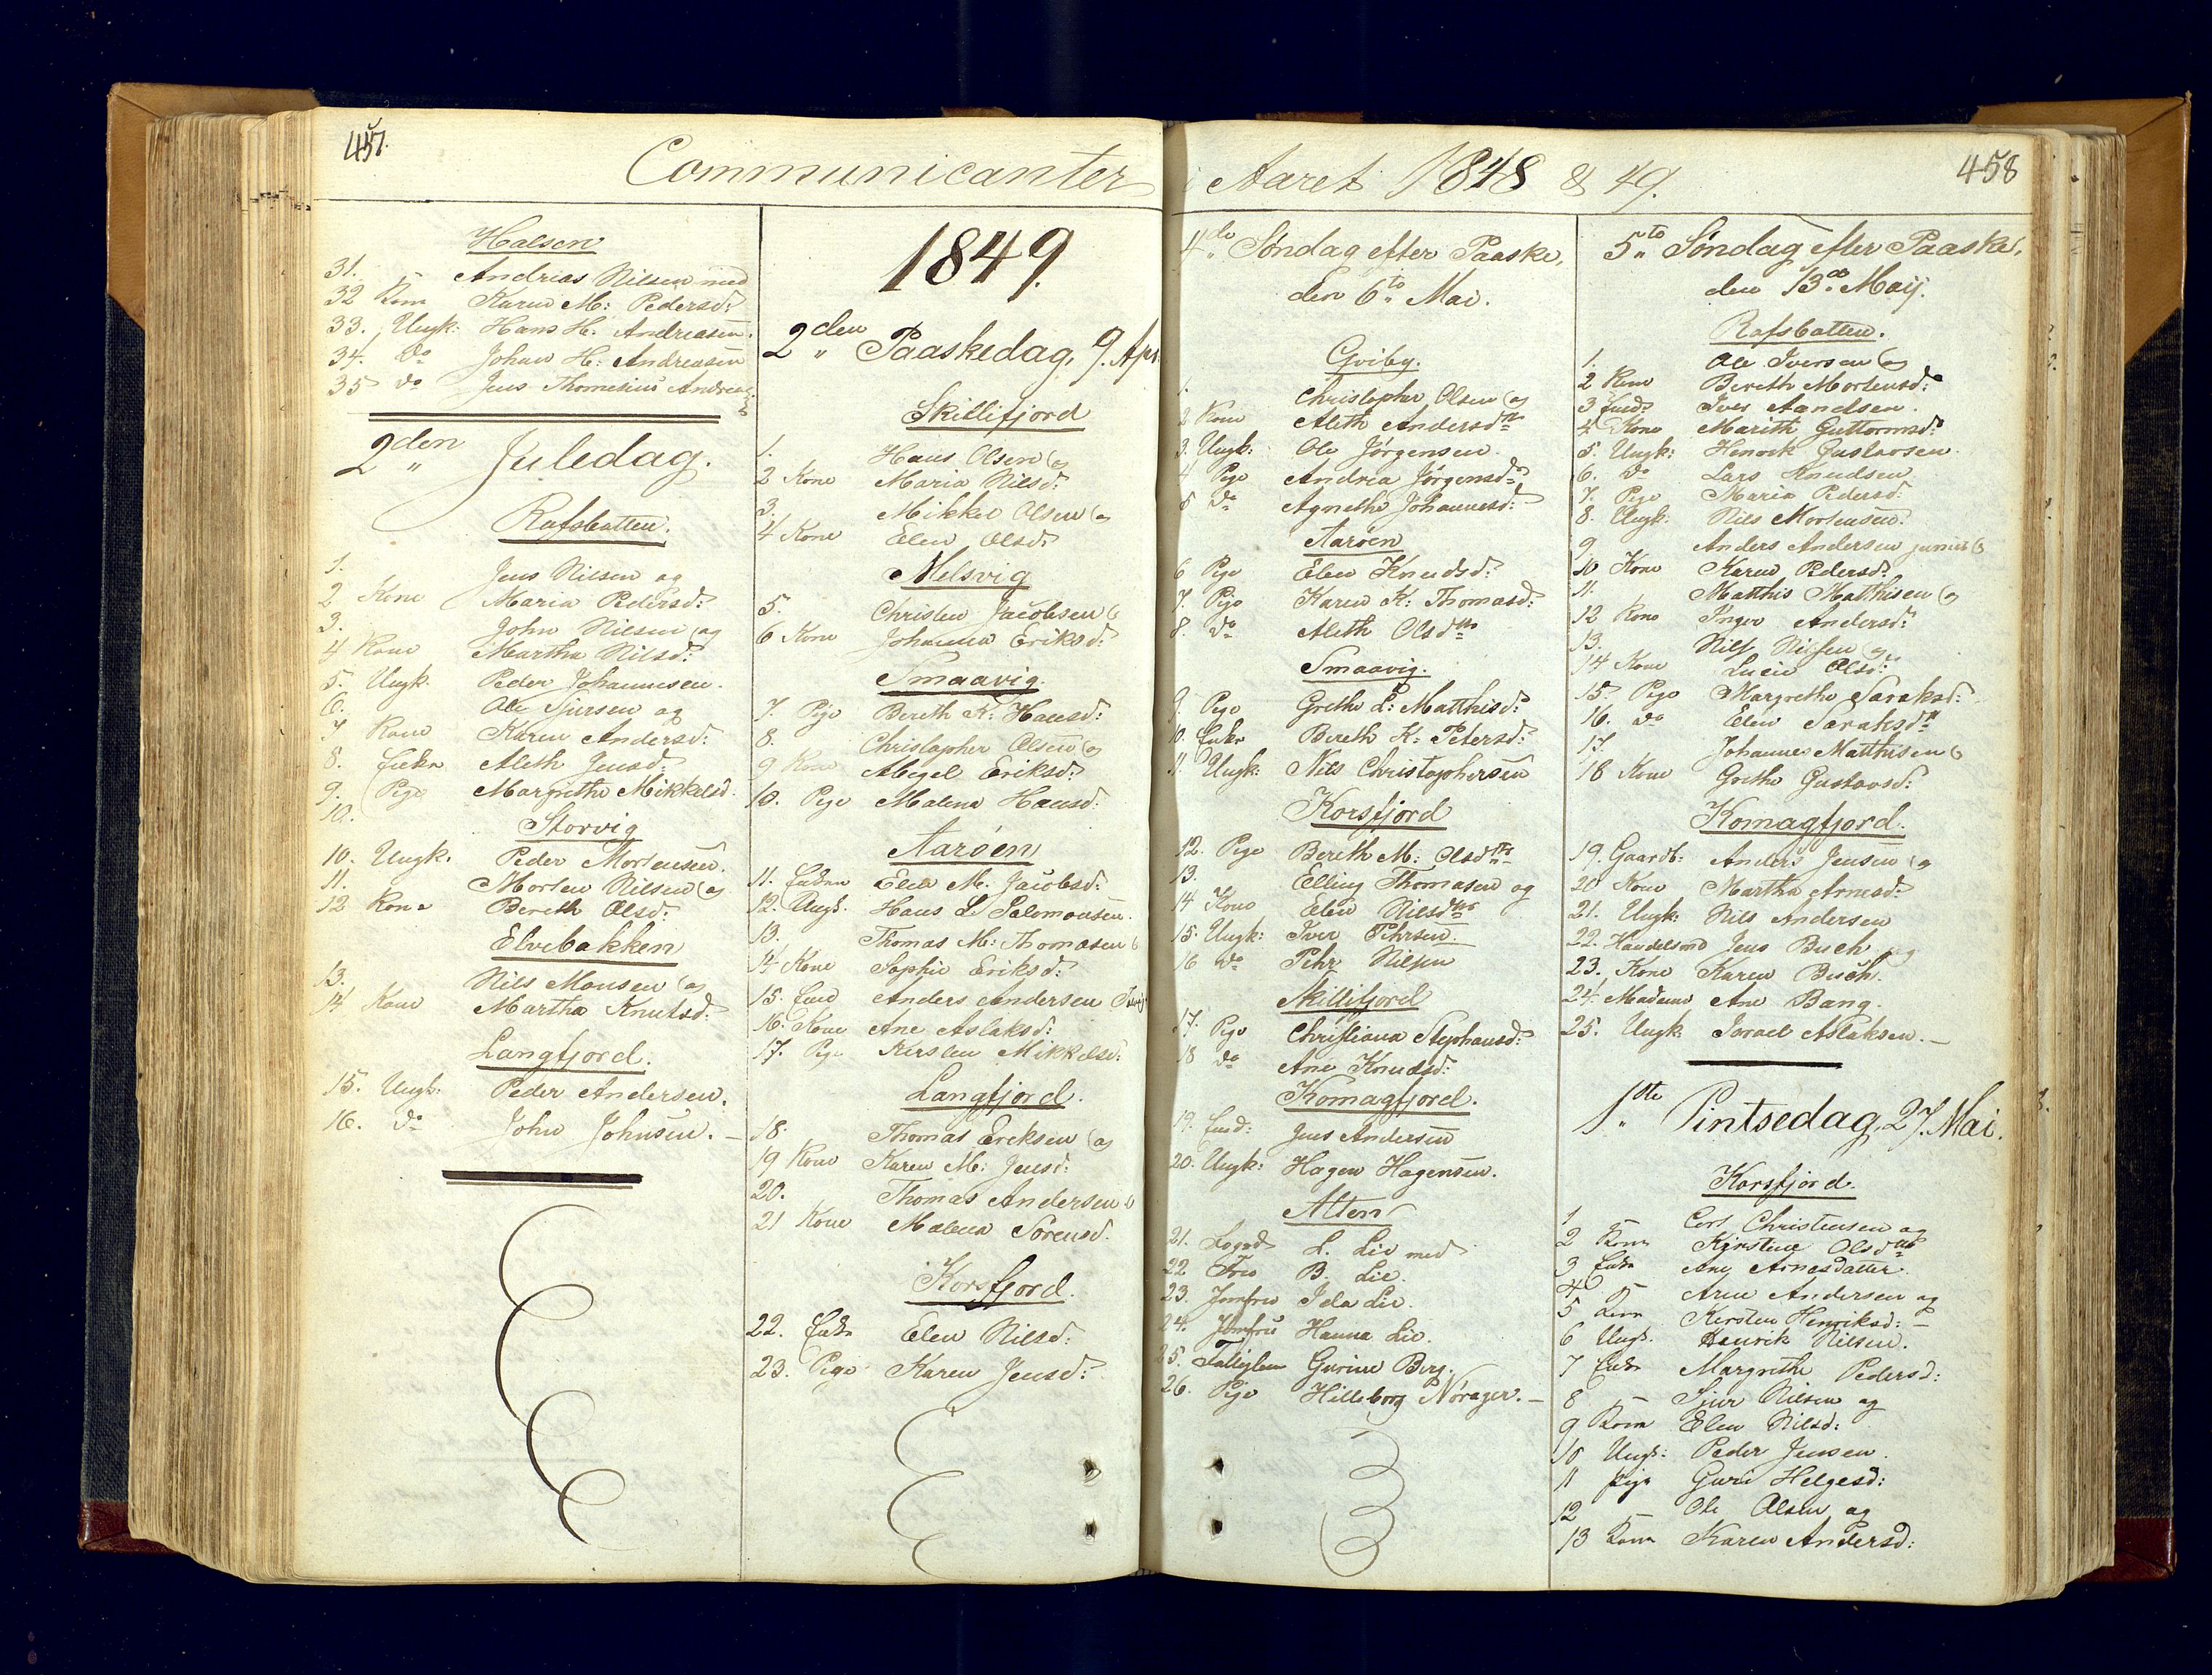 457.
Communicanter
Halsen
31. Andrias Nilsen med
32 Kone Karen M: Pedersd:
33. Ungk: Hans H: Andreasen.
34. do Johan H: Andreasen
35 do Jens Thomesius Andreas
2den Juledag.
Rafsbatten.
1. Jens Nilsen og
2 Kone Maria Pedersd:
3. John Nilsen og
4 Kone Martha Nilsd:
5. Ungk. Peder Johannesen.
6. Ole Sjursen og
7 Kone Karen Andersd:
8. Enke Aleth Jensd:
9. Pige Margrethe Mikkelsd:
10.
Storvig
10. Ungk. Peder Mortensen.
11. Morten Nilsen og
12 Kone Bereth Olsd:
Elvebakken
13. Nils Monsen og
14 Kone Martha Knutsd:
Langfjord.
15. Ungk: Peder Andersen.
16. do John Johnsen.
1849.
2den Paaskedag, 9. Apr.
Skillifjord
1. Hans Olsen og
2 Kone Maria Nilsd:
3. Mikkel Olsen og
4 Kone Elen Olsd:
Melsvig
5. Christen Jacobsen
6 Kone Johanna Eriksd:
Smaavig.
7. Pige Bereth K: Hansd:
8. Christopher Olsen og
9 Kone Abigel Eriksd:
10. Pige Malena Hansd:
Aarøen
11. Enken Elen M. Jacobsd:
12. Ungk. Hans L. Salomonsen.
13. Thomas M: Thomasen
14 Kone Sophie Eriksd:
15. Enke Anders Andersen
16. Kone Ane Aslaksd:
17. Pige Kirsten Mikkelsd:
Langfjord.
18. Thomas Ericksen og
19 Kone Karen M: Jensd:
20. Thomas Andersen
21 Kone Malena Sørensd.
Korsfjord.
22. Enke Elen Nilsd:
23. Pige Karen Jensd:
i Aaret 1848 & 49.
458
4de Søndag efter Paaske,
den 6te Mai.
Qviby.
1. Christopher Olsen og
2 Kone Aleth Andersdtr
3. Ungk: Ole Jørgensen
4 Pige Andrea Jørgensd:
5 do Agnethe Johannesd:
Aarøen
6 Pige Elen Knudsd:
7. Pige Karen K: Thomasd:
8. do Aleth Olsdtr
Smaavig.
9. Pige Grethe L: Matthisd:
10. Enke Bereth K: Petersd:
11. Ungk: Nils Christophersen
Korsfjord
12. Pige Bereth M: Olsdtr
13. Elling Thomasen og
14 Kone Elen Nilsdtr
15. Ungk: Iver Pehrsen.
16 do Pehr Nilsen
Skillifjord
17. Pige Christiana Stephansd:
18 do Ane Knudsd:
Komagfjord.
19. Enke: Jens Andersen
20. Ungk: Hagen Hagensen.
Alten
21. L. Lie med
22 Frue B. Lie.
23. Jomfru Ida Lie.
24. Jomfru Hanna Lie.
25. Gurine Berg.
26. Pige Hilleborg Nørager.
5te Søndag efter Paaske,
den 13de Maij.
Rafsbatten.
1. Ole Iversen og
2 Kone Bereth Mortensd:
3 Iver Aandsen.
4 Kone Marith Guttormsd:
5. Ungk: Henrik Gustavsen.
6. do Lars Knudsen
7. Pige Maria Pedersd:
8. Ungk: Nils Mortensen.
9 Anders Andersen junior
10 Kone Karen Pedersd:
11. Matthis Matthisen og
12 Kone Inger Andersd:
13. Nils Nilsen og
14 Kone Lucie Olsd:
15. Pige Margrethe Saraksd:
16. do Elen Saraksdtr
17. Johannes Matthisen
18 Kone Grethe Gustavsd:
Komagfjord.
19. Gaardb: Anders Jensen og
20 Kone Martha Arnesd:
21. Ungk: Nils Andersen
22. Handelsmd Jens Buch og
23. Kone Karen Buch.
24. Madame Ane Bang.
25. Ungk: Israel Aslaksen.
1ste Pintsedag, 27. Mai.
Korsfjord.
1 Carl Christensen og
2 Kone Kirstine Olsdtr
3 Enke Ane Arnesdatter.
4 Arne Andersen og
5 Kone Kersten Henriksd:
6 Ungk. Henrik Nilsen.
7 Enke Margrethe Pedersd:
8 Sjur Nilsen og
9 Kone Elen Nilsd:
10 Ungk: Peder Jensen.
11 Pige Guru Helgesd:
12 Ole Olsen og
13 Kone Karen Andersd: